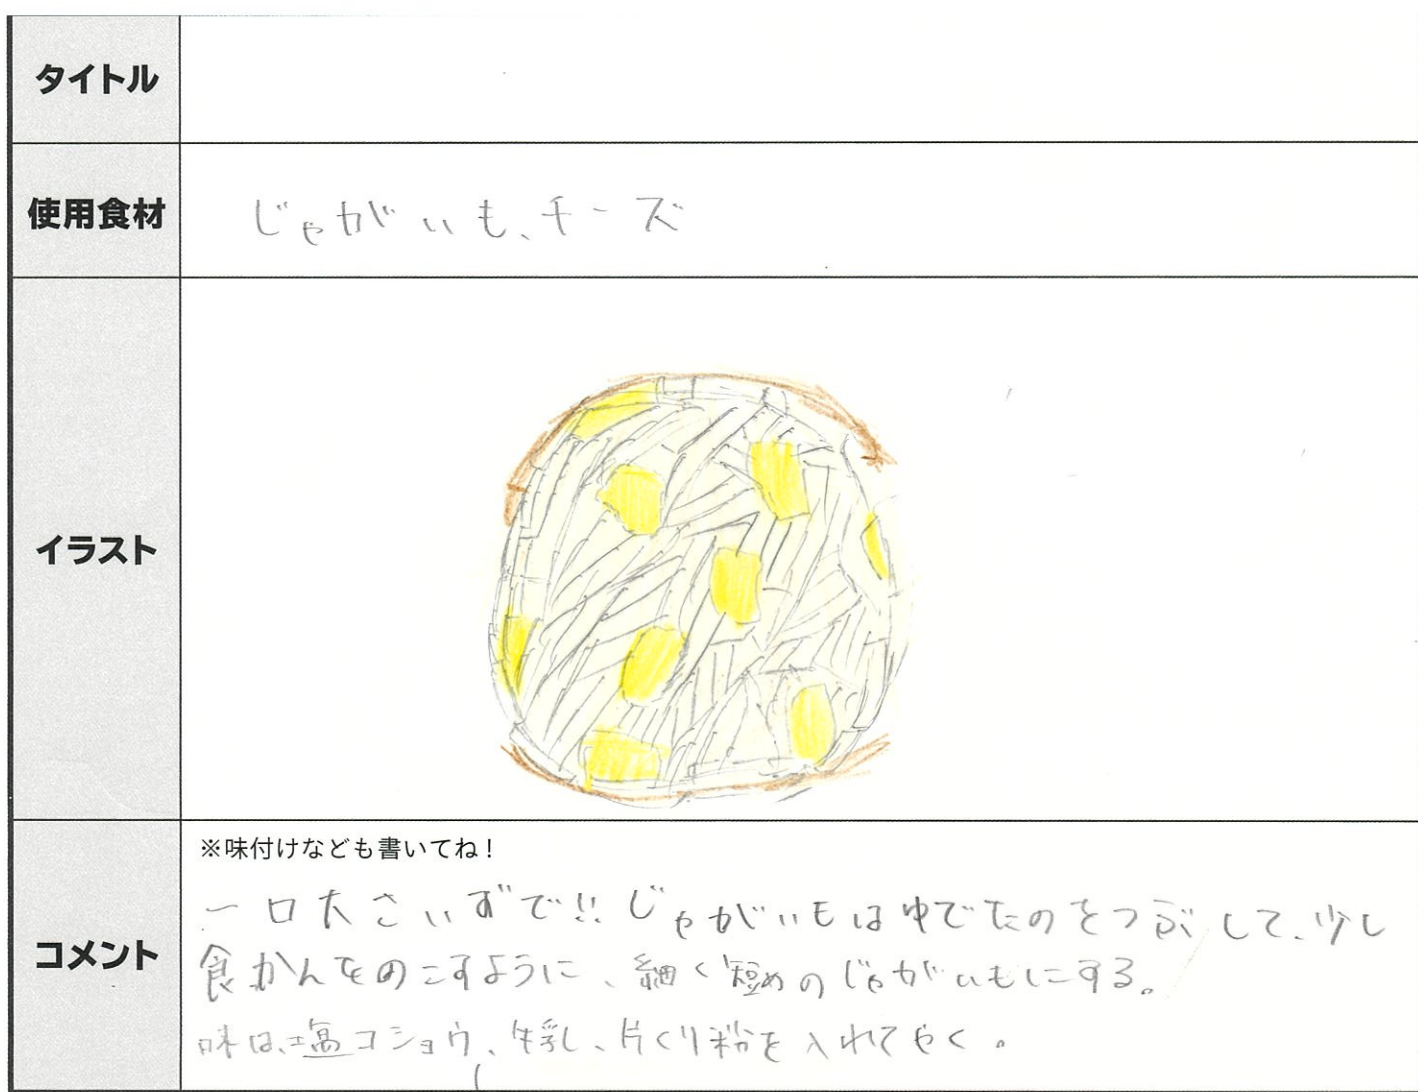 タイトル
使用食材
じゃがいも、チーズ
イラスト
コメント
※味付けなども書いてね！
一口大さいずで!! じゃがいもはゆでたのをつぶして、少し
食かんをのこすように、細く短めのじゃがいもにする。
味は、塩コショウ、牛乳、片くり粉を入れてやく。